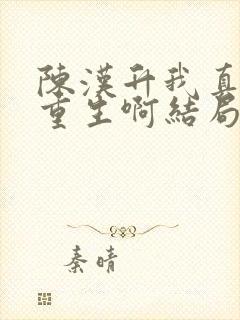 陳漢升我真
重生啊結局
秦晴